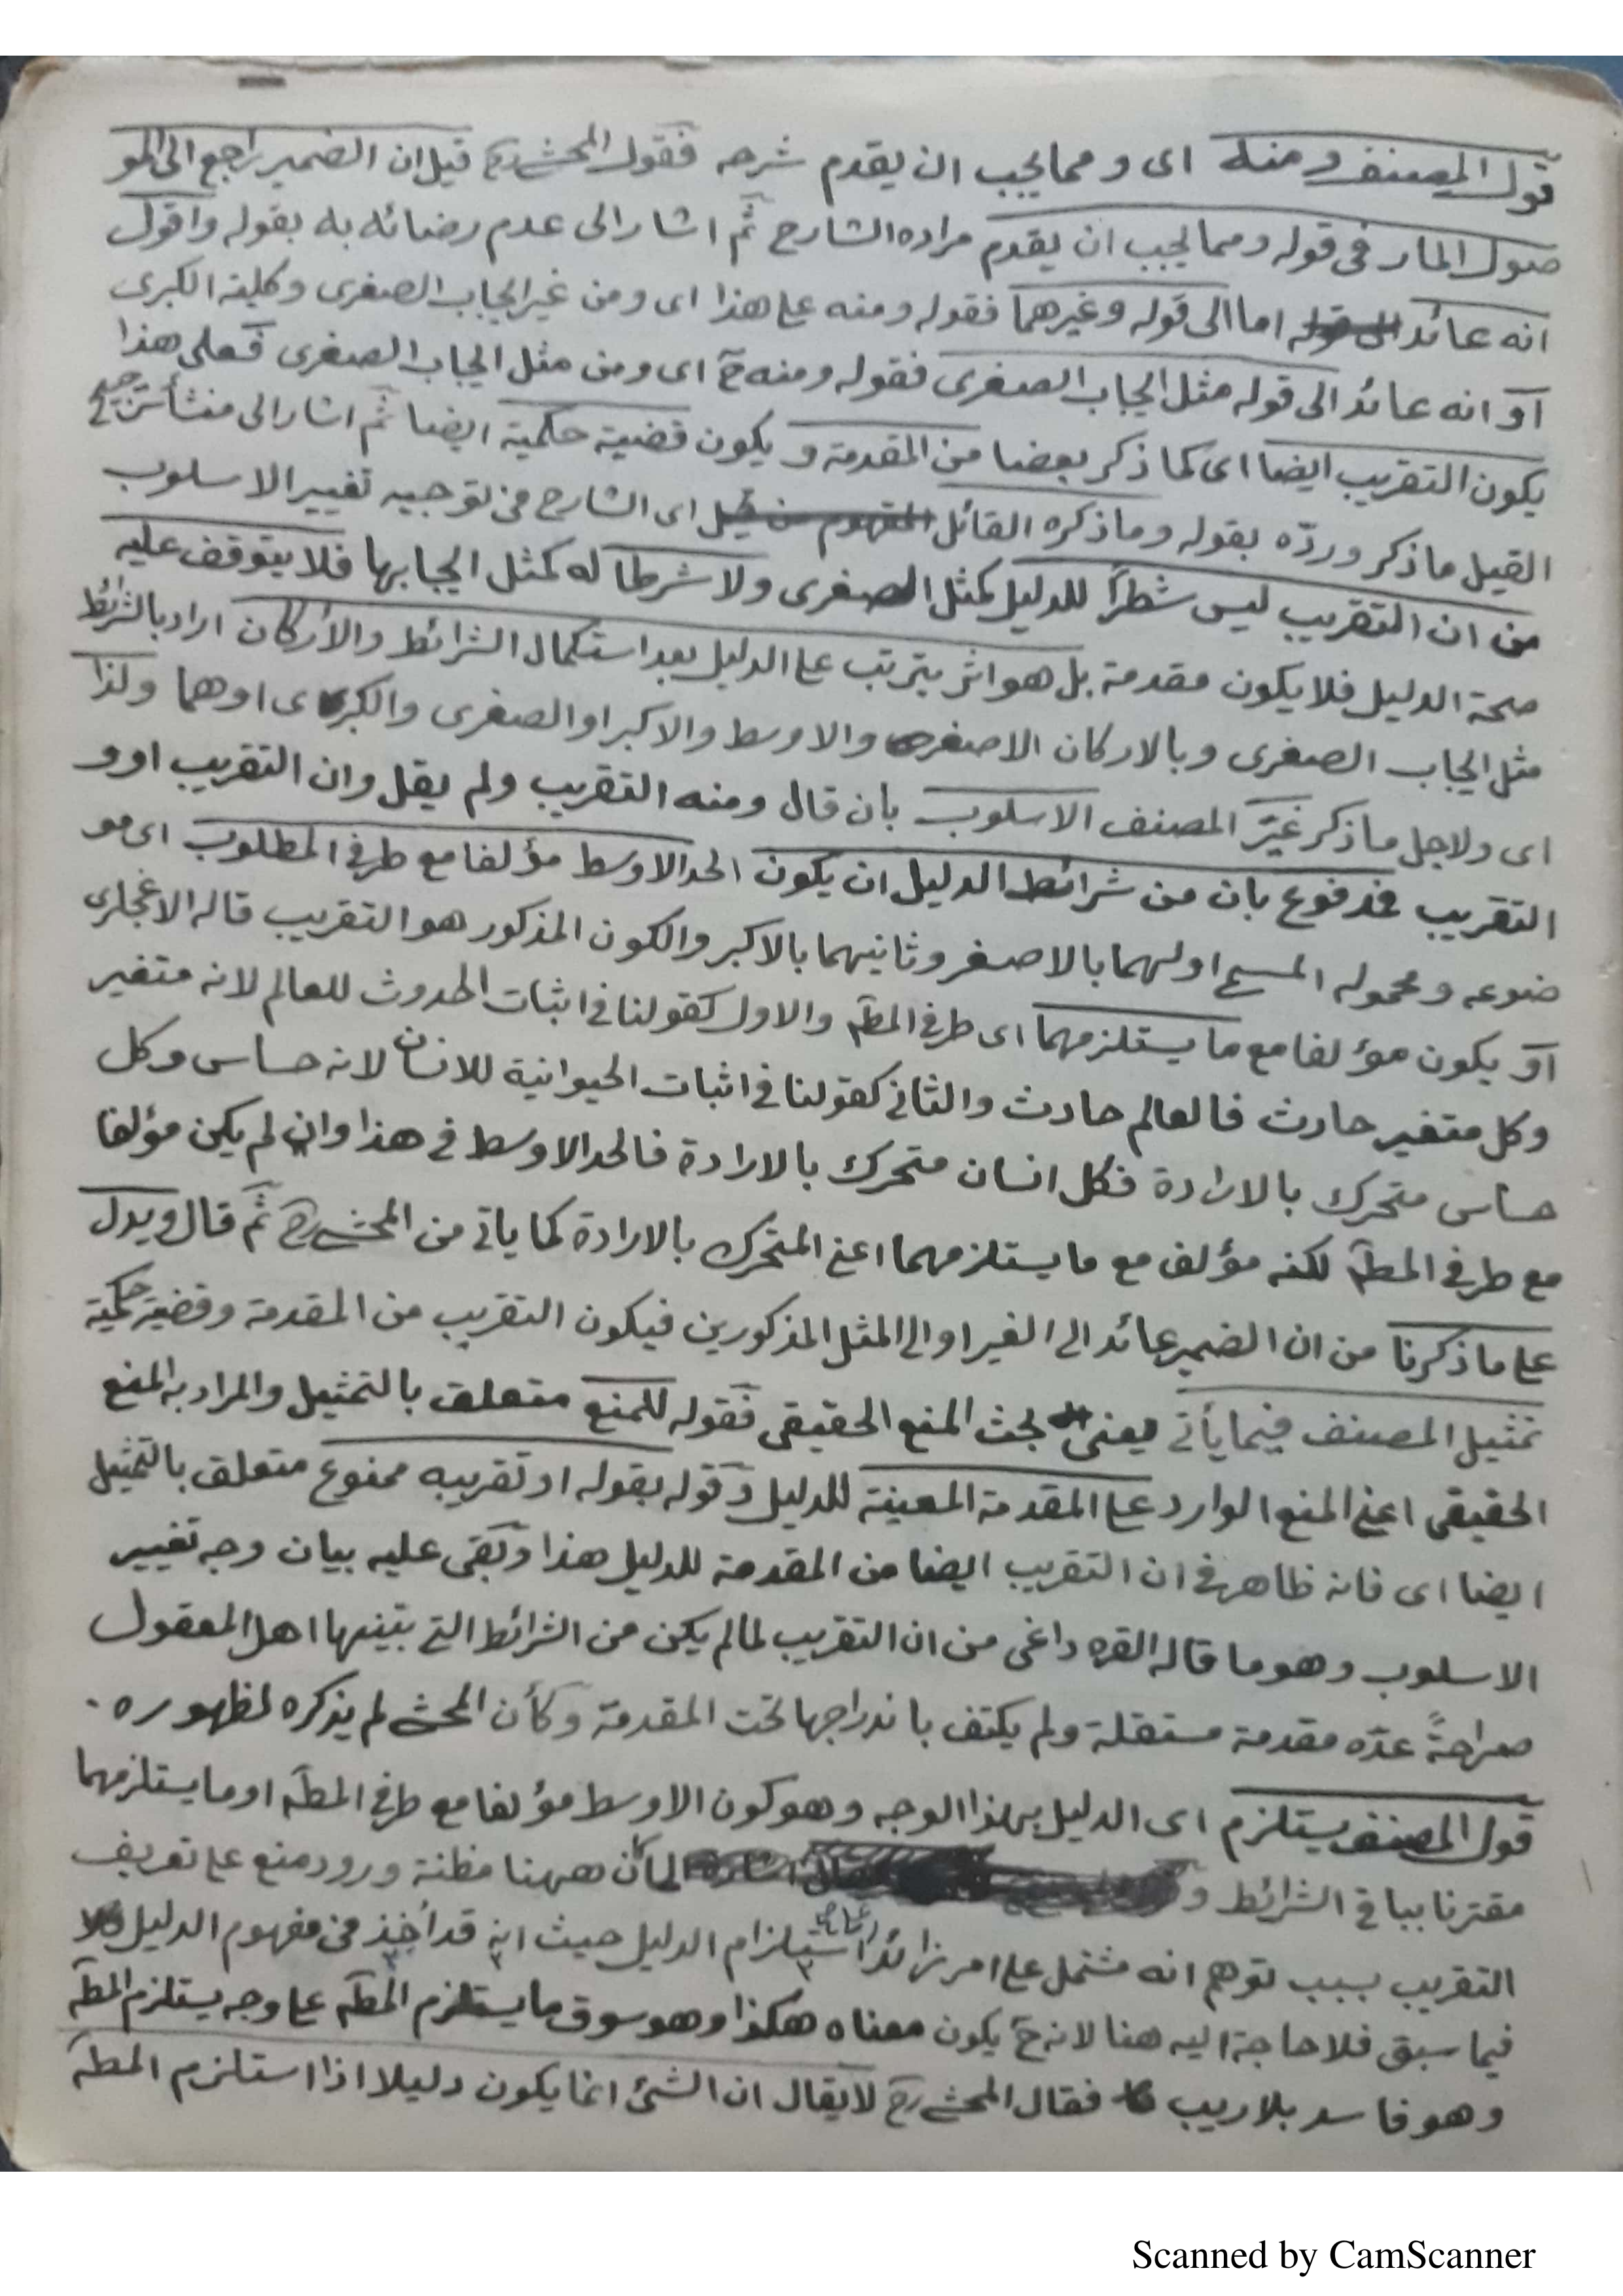 قول المصنف ومنه اى ومما يجب ان يقدم شرحه فقول المحشى رح قيل ان الضمير راجع الى المو
صول المار فى قوله ومما يجب ان يقدم مراده الشارح ثم اشار الى عدم رضائه به بقوله واقول
انه عائد اما الى قوله وغيرهما فقوله ومنه على هذا اى ومن غير ايجاب الصغرى وكلية الكبرى
او انه عائد الى قوله مثل ايجاب الصغرى فقوله ومنه ح اى ومن مثل ايجاب الصغرى فعلى هذا
يكون التقريب ايضا اى كما ذكر بعضا من المقدمة ويكون قضية حكمية ايضا ثم اشار الى منشأ
القيل ما ذكر وردّه بقوله وما ذكره القائل اى الشارح فى توجيه تغيير الاسلوب
من ان التقريب ليس شطراً للدليل كمثل الصغرى ولا شرطا له كمثل ايجابها فلا يتوقف عليه
صحة الدليل فلا يكون مقدمة بل هو اثر يترتب على الدليل بعد استكمال الشرائط والأركان اراد بالشرائط
مثل ايجاب الصغرى وبالاركان الاصغر والاوسط والاكبر او الصغرى والكبرى اوهما ولذا
اى ولاجل ما ذكر غيّر المصنف الاسلوب بان قال ومنه التقريب ولم يقل وان التقريب او و
التقريب فمدفوع بان من شرائط الدليل ان يكون الحد الاوسط مؤلفا مع طرفى المطلوب اى مو
ضوعه ومحموله المسمى اولهما بالاصغر وثانيهما بالاكبر والكون المذكور هو التقريب قاله
او يكون مؤلفا مع ما يستلزمهما اى طرفى المطـ والاول كقولنا فى اثبات الحدوث للعالم لانه متغير
وكل متغير حادث فالعالم حادث والثانى كقولنا فى اثبات الحيوانية للانسان لانه حساس وكل
حساس متحرك بالارادة فكل انسان متحرك بالارادة فالحد الاوسط فى هذا وان لم يكن مؤلفا
مع طرفى المطـ لكنه مؤلف مع ما يستلزمهما اعنى المتحرك بالارادة كما يأتى من المحشى رح ثم قال ويدل
على ما ذكرنا من ان الضمير عائد الى الغير او الى المثل المذكورين فيكون التقريب من المقدمة وقضية حكمية
تمثيل المصنف فيما يأتى يعنى بحث المنع الحقيقى فقوله للمنع متعلق بالتمثيل والمراد به المنع
الحقيقى اعنى المنع الوارد على المقدمة المعينة للدليل وقوله بقوله او تقريبه ممنوع متعلق بالتمثيل
ايضا اى فانه ظاهر فى ان التقريب ايضا من المقدمة للدليل هذا وبقى عليه بيان وجه تغيير
الاسلوب وهو ما قاله القره داغى من ان التقريب لما لم يكن من الشرائط التى بيّنها اهل المعقول
صراحةً عدّه مقدمة مستقلة ولم يكتف باندراجها تحت المقدمة وكأن المحشى لم يذكره لظهوره .
قول المصنف يستلزم اى الدليل بهذا الوجه وهو كون الاوسط مؤلفا مع طرفى المطـ او ما يستلزمهما
مقترنا بباقى الشرائط و لما كان ههنا مظنة ورود منع على تعريف
التقريب بسبب توهم انه مشتمل على امر زائد استلزام الدليل حيث انه قد أخذ فى مفهوم الدليل
فيما سبق فلا حاجة اليه هنا لانه ح يكون معناه هكذا وهو سوق ما يستلزم المطـ على وجه يستلزم المطـ
وهو فاسد بلا ريب فقال المحشى رح لا يقال ان الشئ انما يكون دليلا اذا استلزم المطـ
Scanned by CamScanner